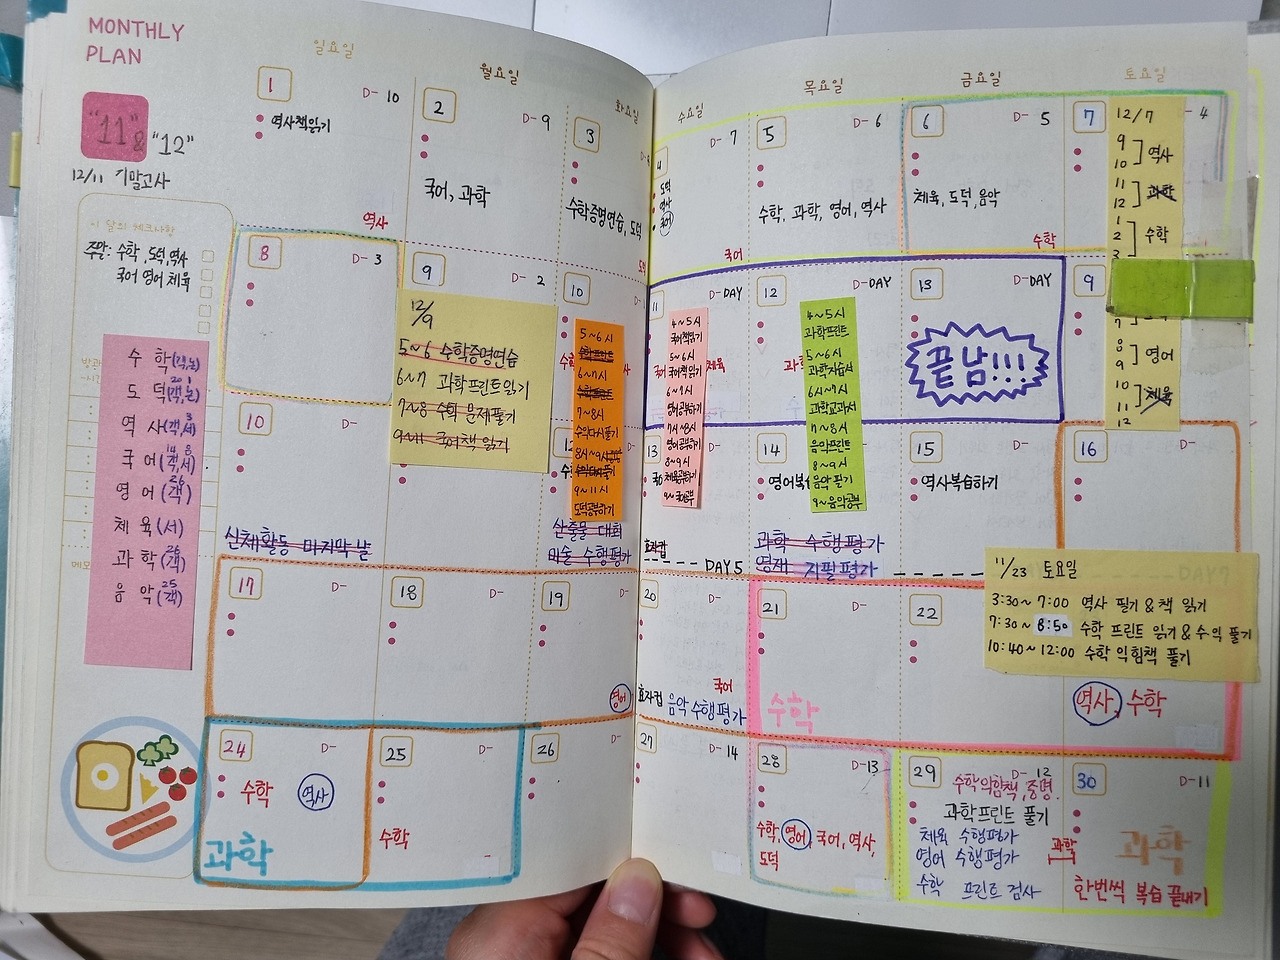 MONTHLY
PLAN
일요일
월요일
화요일
수요일
목요일
금요일
토요일
"11"
& "12"
12/11 기말고사
이 달의 체크사항
주말: 수학, 도덕, 역사
국어 영어 체육
수 학(객,논)
도 덕(객,논)
역 사(객,서)
국 어(객,서)
영 어(객)
체 육(서)
과 학(객)
음 악(객)
1 D-10
역사책읽기
역사
2 D-9
국어, 과학
3
수학증명연습, 도덕
4 D-7
도덕
역사
국어
국어
5 D-6
수학, 과학, 영어, 역사
6 D-5
체육, 도덕, 음악
수학
7 -4
12/7
9
10 역사
11
12 과학
1
2 수학
3
8
9 영어
10
11 체육
12
8 D-3
9 D-2
12/9
5~6 수학증명연습
6~7 과학프린트읽기
7~8 수학 문제풀기
9~11 국어책 읽기
10
5~6시
6~7시
7~8시
9~11시
도덕공부하기
11 D-DAY
4~5시
국어책읽기
5~6시
국어책읽기
6~7시
영어공부하기
7시~8시
영어공부하기
8~9시
체육공부하기
체육
12 D-DAY
4~5시
과학프린트
5~6시
과학자습서
6시~7시
과학교과서
7~8시
음악프린트
8~9시
음악 필기
9~음악공부
13 D-DAY
끝남!!!
9
10
신체활동 마지막 날
12
산출물 대회
미술 수행평가
13
효자컵
DAY5
14
영어복습
과학 수행평가
영재 지필평가
15
역사복습하기
16
DAY7
11/23 토요일
3:30~7:00 역사 필기 & 책 읽기
7:30~8:50 수학 프린트 읽기 & 수익 풀기
10:40~12:00 수학 익힘책 풀기
17 D-
18 D-
19 D-
영어
20 D-
국어
효자컵 음악 수행평가
21 D-
수학
22 D-
역사, 수학
24 D-
수학 역사
과학
25 D-
수학
26 D-
27 D-14
28 D-13
수학, 영어, 국어, 역사,
도덕
29 D-12
수학익힘책, 증명.
과학프린트 풀기
체육 수행평가
영어 수행평가
수학 프린트 검사
과학
30 D-11
과학
한번씩 복습 끝내기